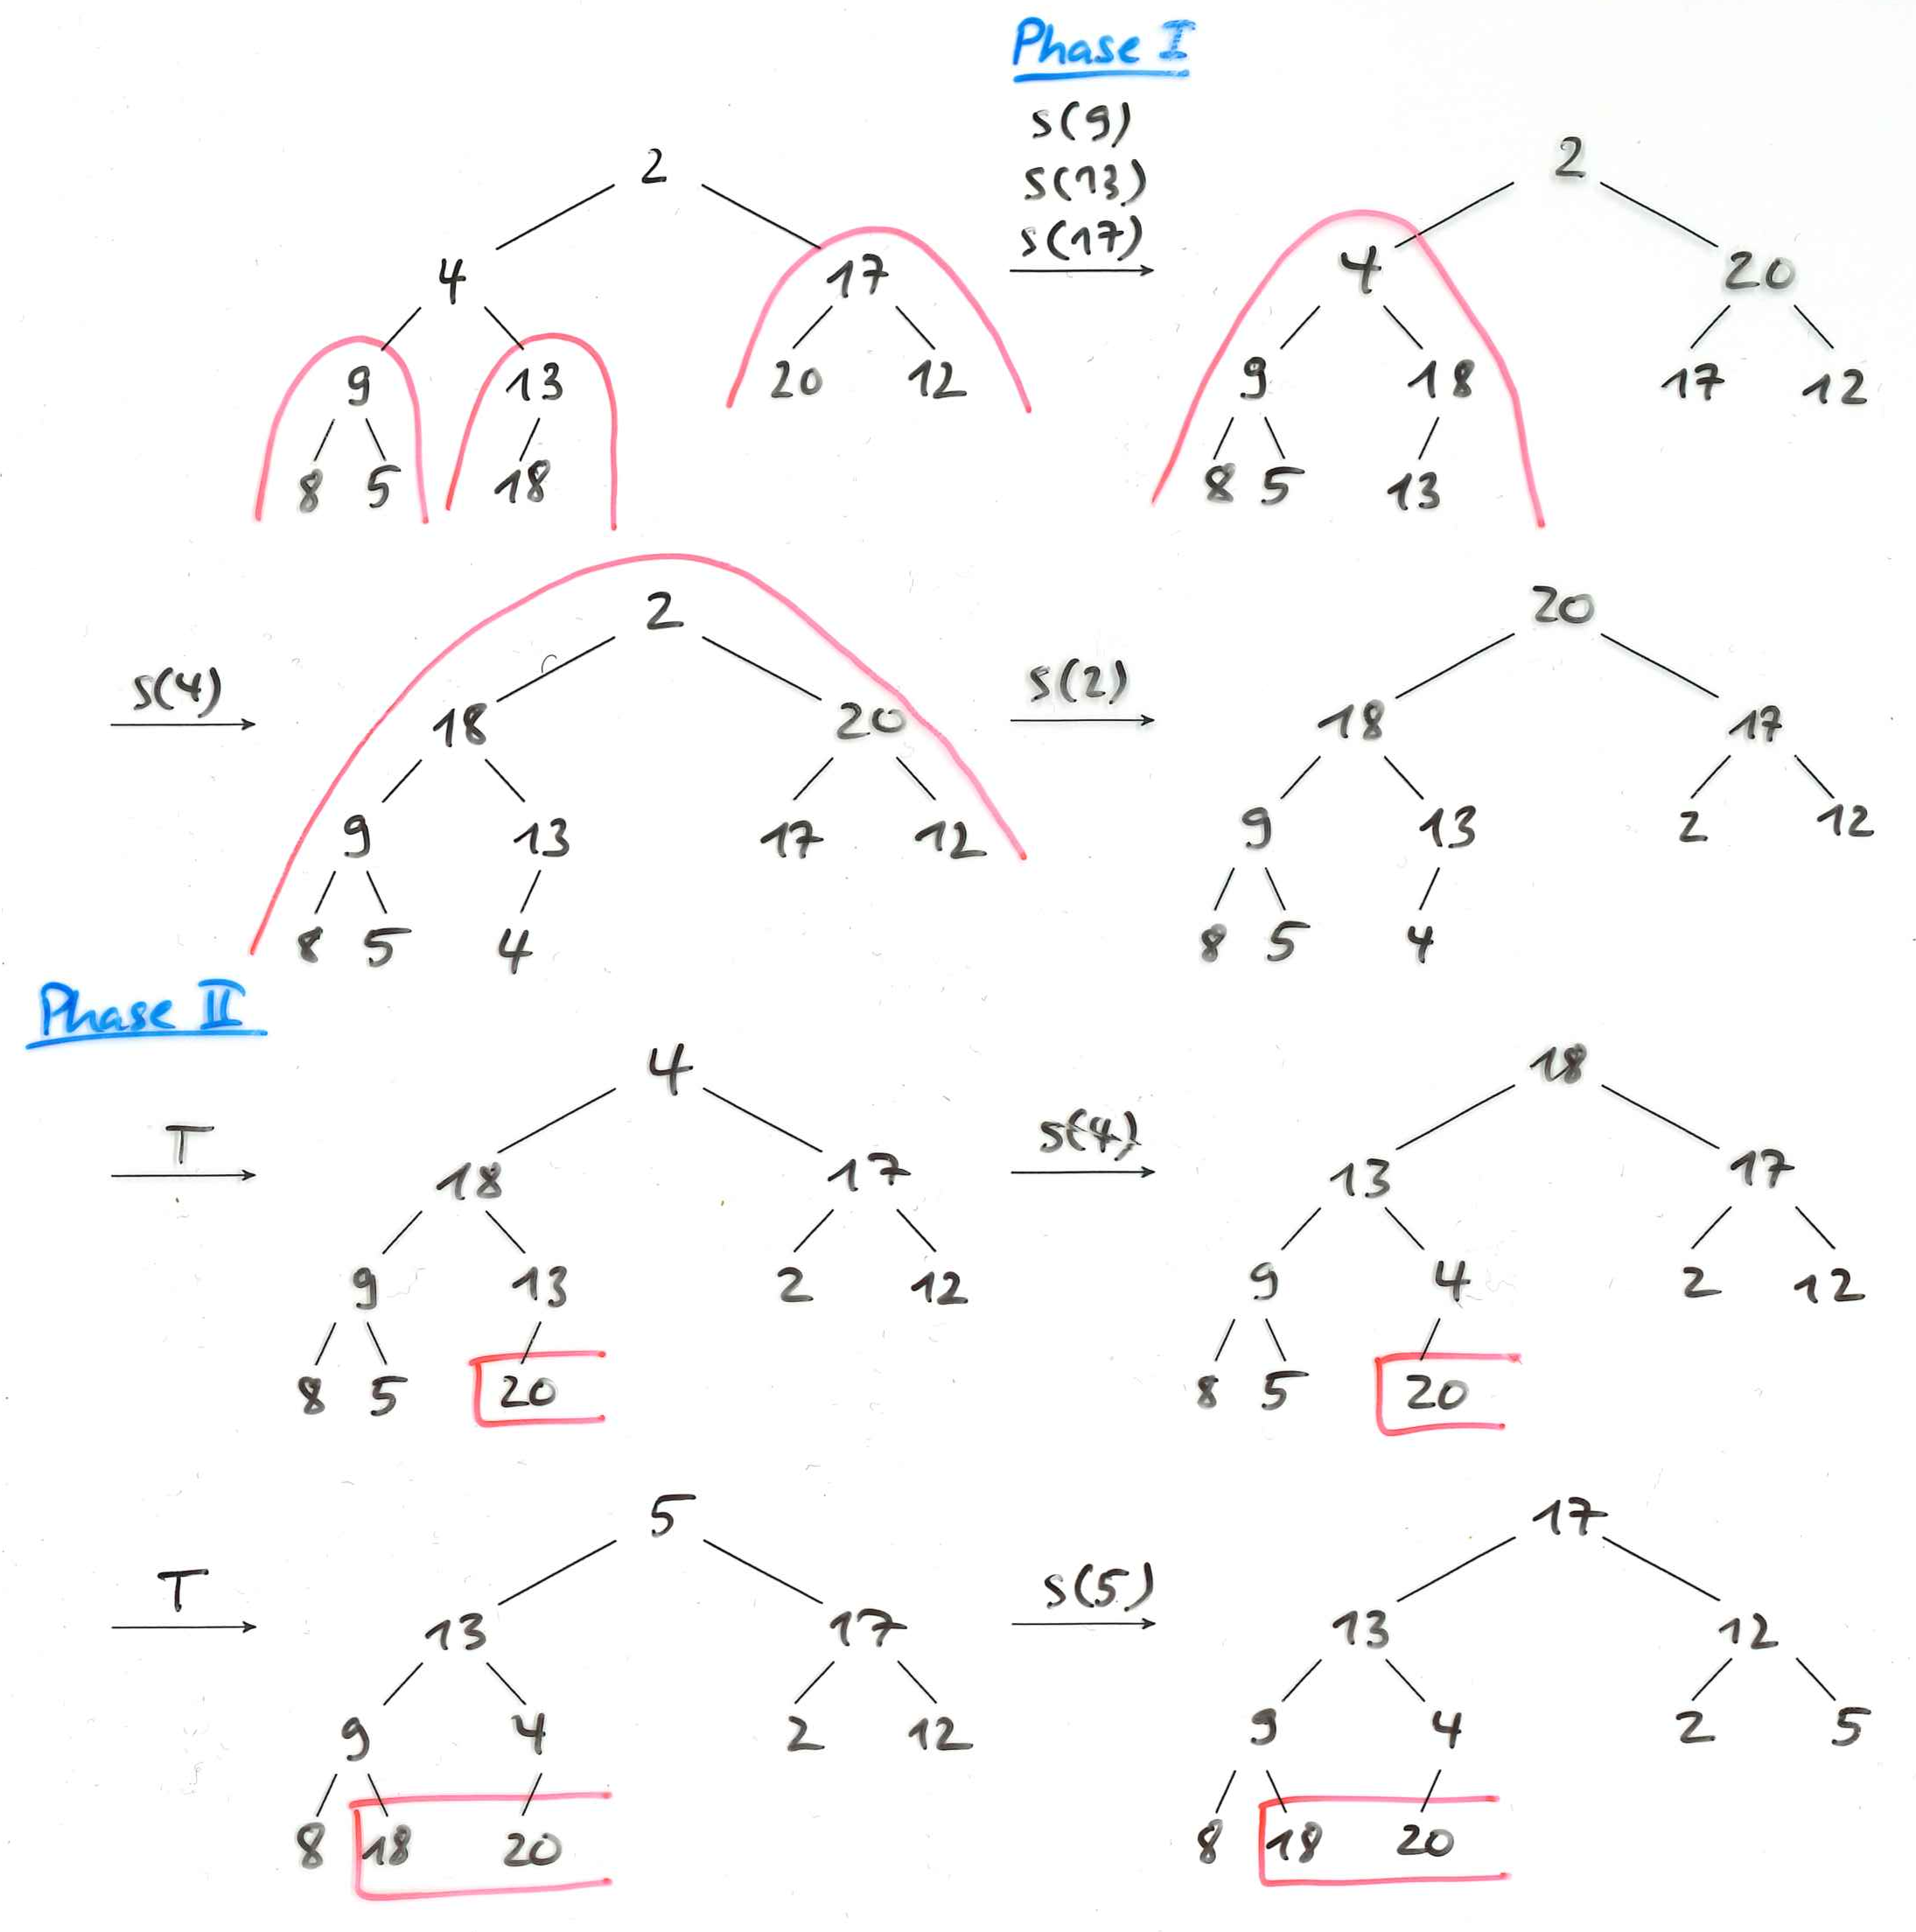 Phase I
s(9)
s(13)
s(17)
2
4 17
9 13 20 12
8 5 18
2
4 20
9 18 17 12
8 5 13
s(4)
2
18 20
9 13 17 12
8 5 4
s(2)
20
18 17
9 13 2 12
8 5 4
Phase II
T
4
18 17
9 13 2 12
8 5 20
s(4)
18
13 17
9 4 2 12
8 5 20
T
5
13 17
9 4 2 12
8 18 20
s(5)
17
13 12
9 4 2 5
8 18 20